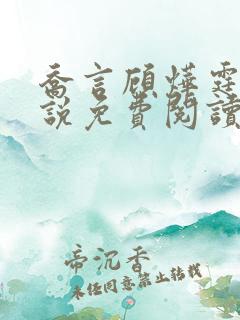 喬言顧燁霆
說免費閱讀
帝沉香
未经同意禁止转载